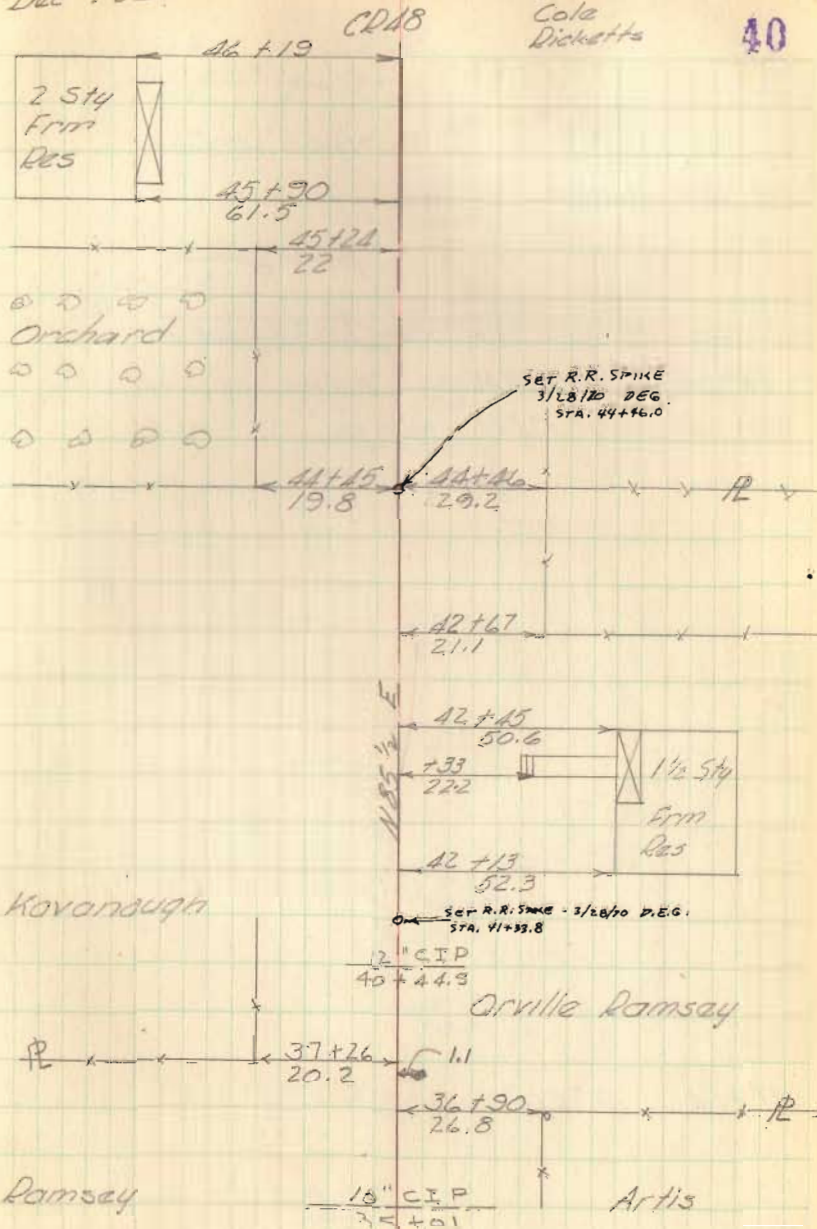 CR48
Cole
Ricketts
40
46 +19
2 Sty
Frm
Res
45 +90
61.5
45+24
22
Orchard
SET R.R. SPIKE
3/28/70 DEG.
STA. 44+46.0
44+45
19.8
44+46
29.2
PL
42 +67
21.1
N 85 ½ E
42 +45
50.6
+33
22.2
1½ Sty
Frm
Res
42 +13
52.3
Kavanaugh
SET R.R. SPIKE - 3/28/70 D.E.G.
STA. 41+33.8
12" CIP
40+44.9
Orville Ramsey
PL
37+26
20.2
1.1
36+90
26.8
PL
Ramsey
18" CIP
35+01
Artis